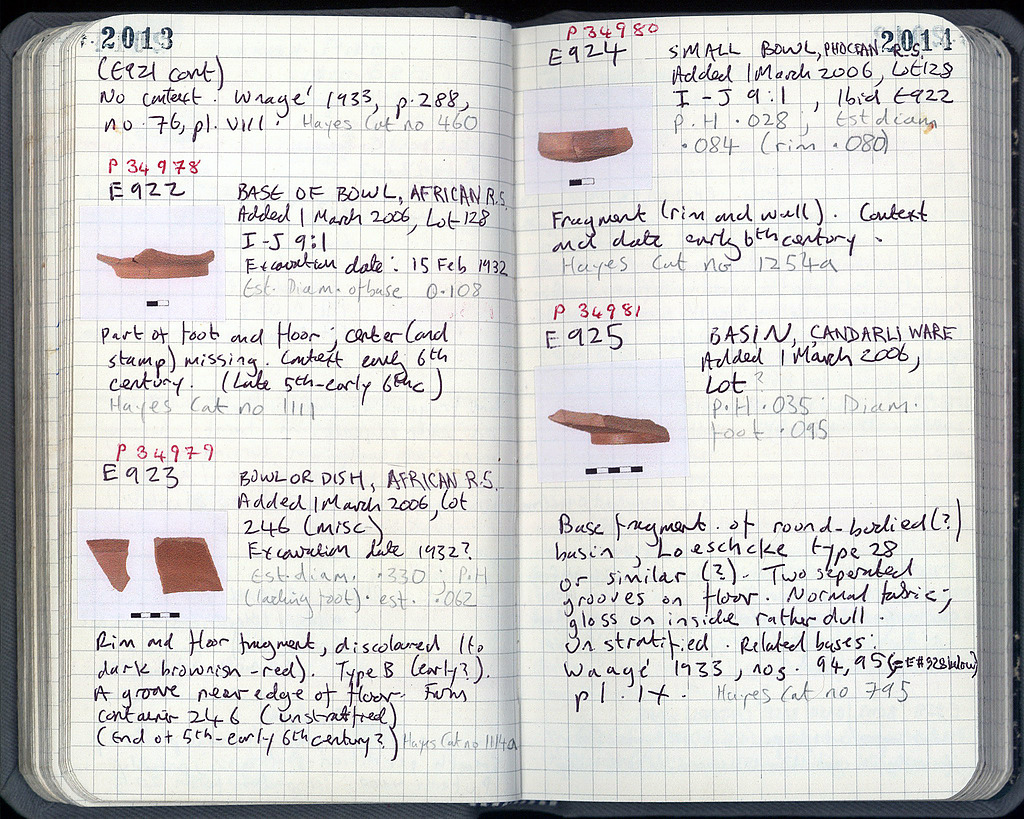 2013
(E921 cont)
No context. Waagé 1933, p.288,
no. 76, pl. VIII. Hayes Cat no 460
P 34978
E922
BASE OF BOWL, AFRICAN R.S.
Added 1 March 2006, Lot 128
I-J 9:1
Excavation date: 15 Feb 1932
Est. Diam. of base 0.108
Part of foot and floor; center (and
stamp) missing. Context early 6th
century. (Late 5th-early 6thc)
Hayes Cat no 1111
P 34979
E923
BOWL OR DISH, AFRICAN R.S.
Added 1 March 2006, Lot
246 (misc)
Excavation date 1932?
Est. diam. .330; P.H
(lacking foot). est. .062
Rim and floor fragment, discoloured (to
dark brownish-red). Type B (early?).
A groove near edge of floor. From
container 246 (unstratified)
(End of 5th-early 6th century?) Hayes Cat no 1114a
2014
P 34980
E924
SMALL BOWL, PHOCEAN R.S.
Added 1 March 2006, Lot 128
I-J 9:1, Ibid E922
P.H .028; Est diam
.084 (rim .080)
Fragment (rim and wall). Context
and date early 6th century.
Hayes Cat no 1254a
P 34981
E925
BASIN, CANDARLI WARE
Added 1 March 2006,
Lot ?
P.H .035 Diam.
foot .095
Base fragment of round-bodied (?)
basin, Loeschcke type 28
or similar (?). Two separated
grooves on floor. Normal fabric;
gloss on inside rather dull.
Unstratified. Related bases:
Waagé 1933, nos. 94, 95 (=E#928 below)
pl. IX. Hayes Cat no 795